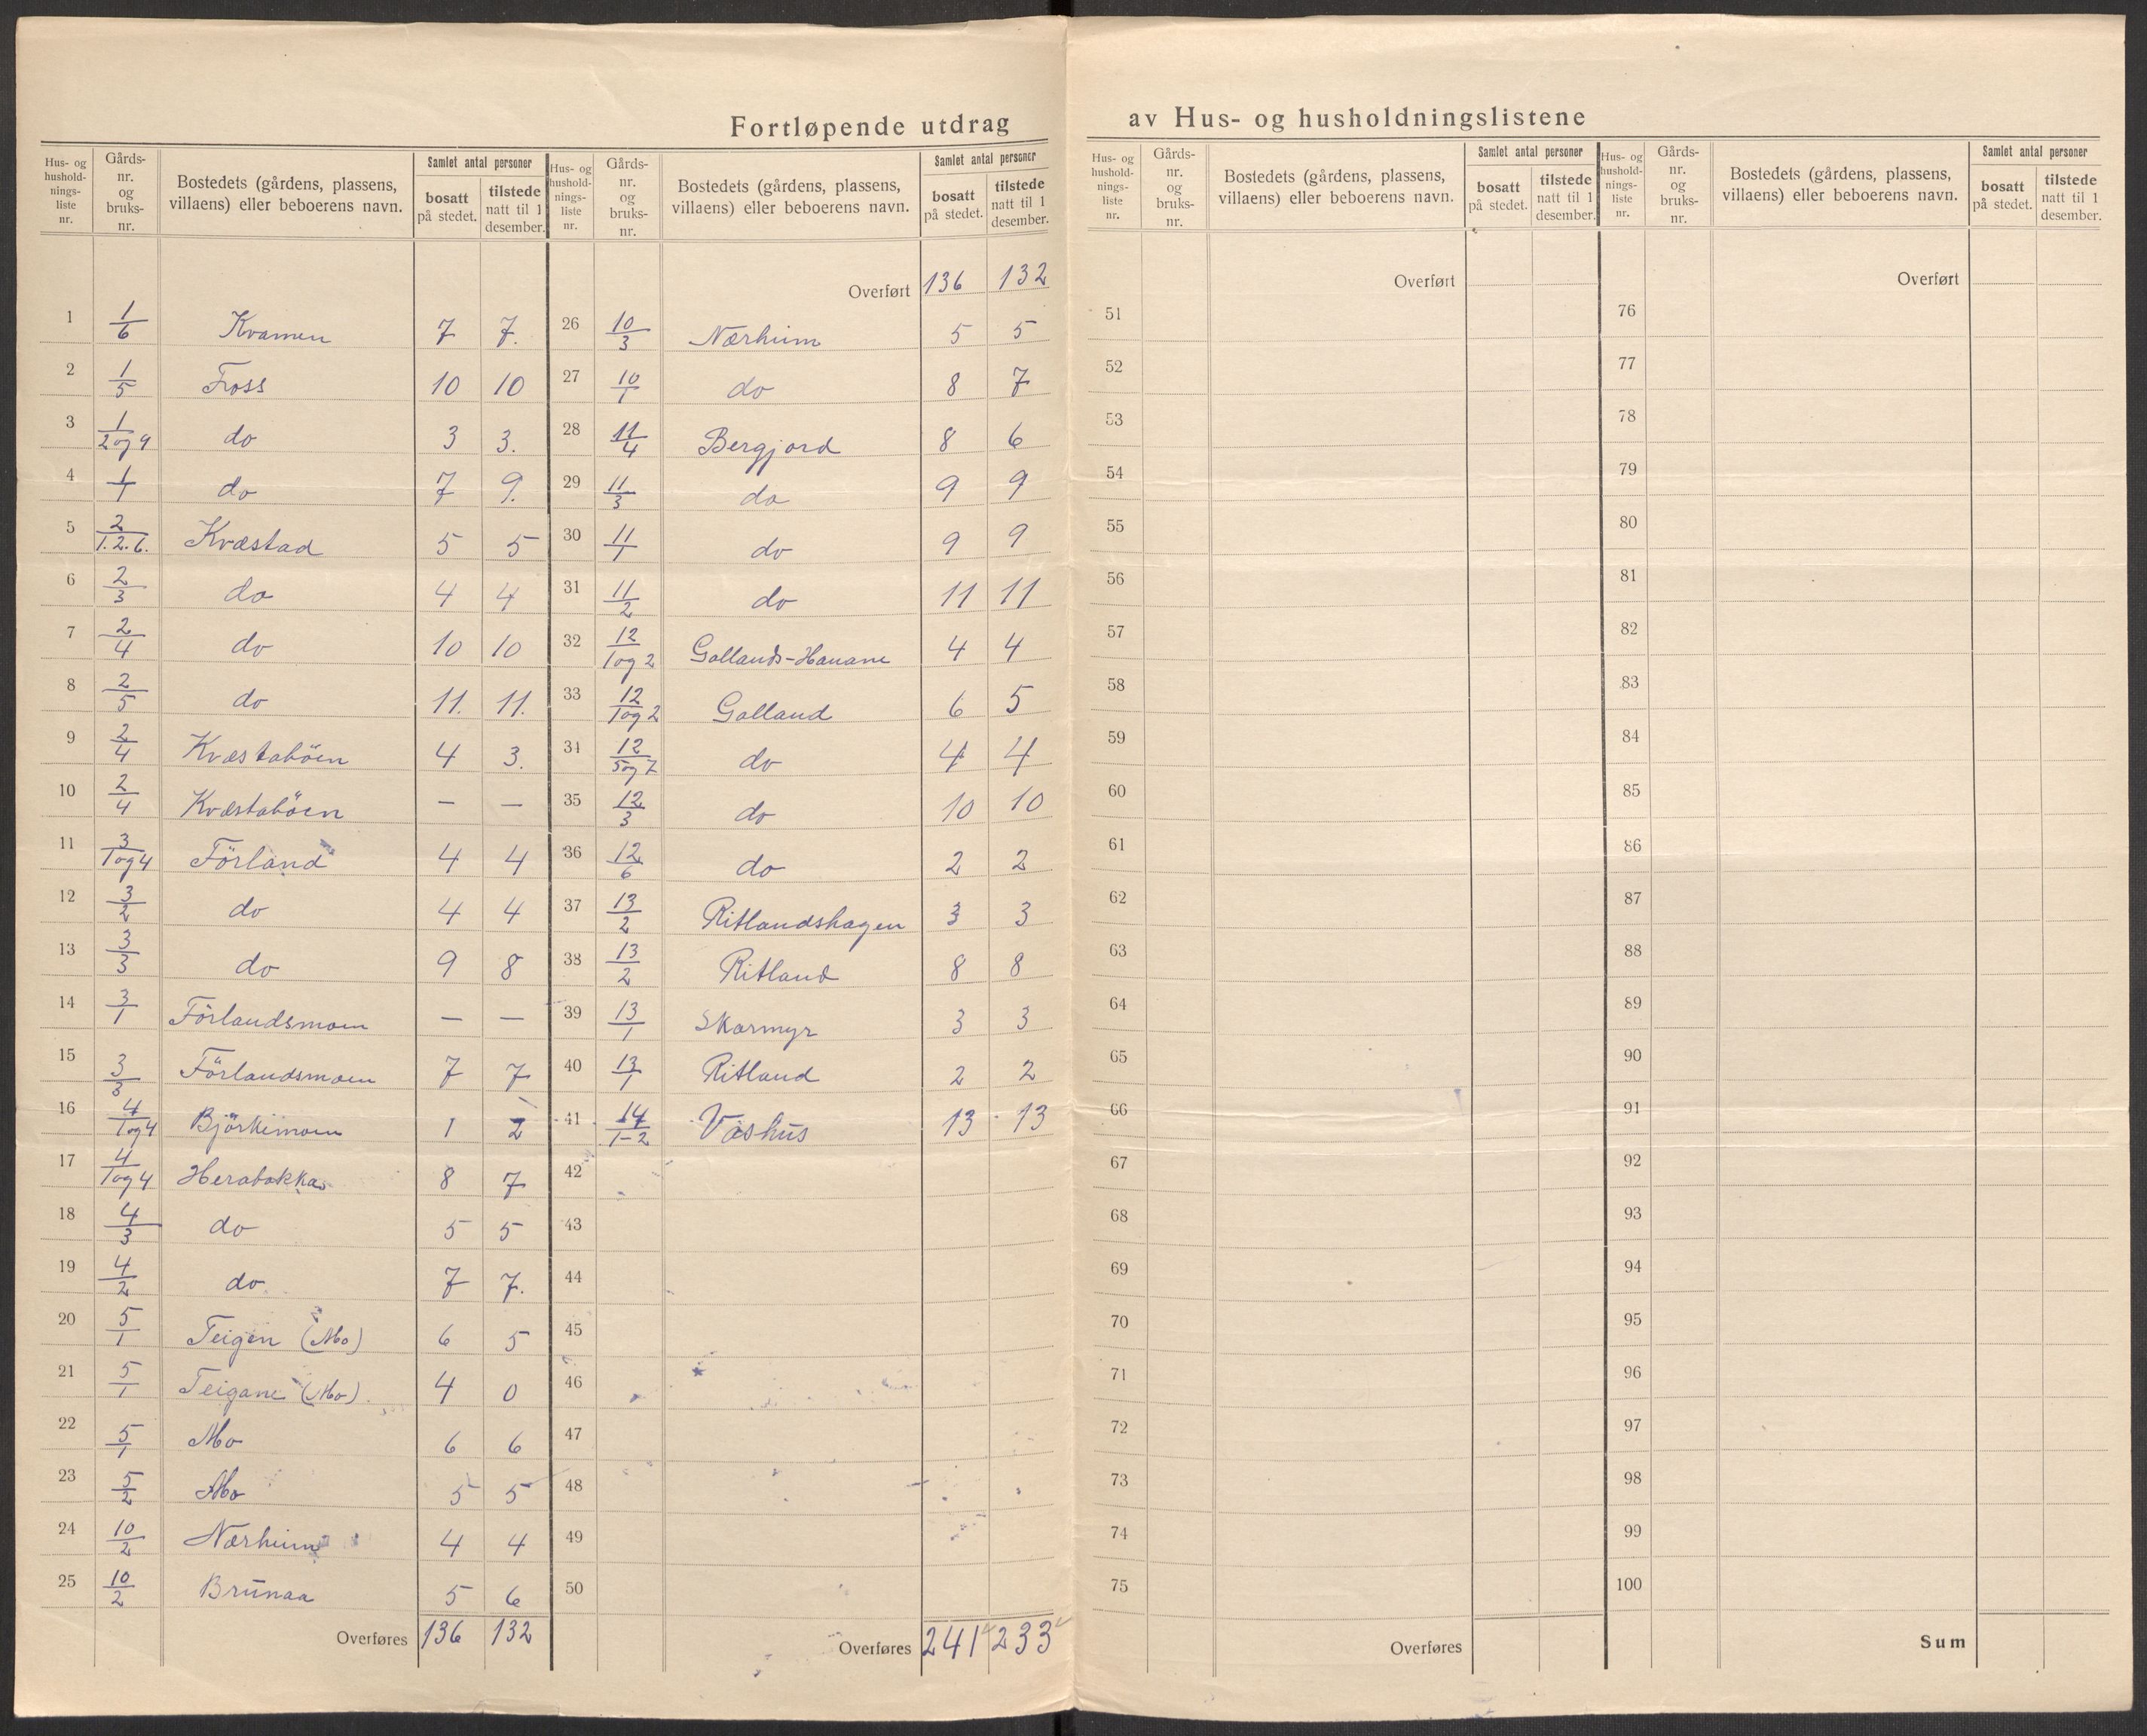 Fortløpende utdrag av Hus- og husholdningslistene
Hus- og hushold-nings-liste nr. | Gårds-nr. og bruks-nr. | Bostedets (gårdens, plassens, villaens) eller beboerens navn. | Samlet antal personer: bosatt på stedet. | tilstede natt til 1 desember.
1 1/6 Kvamen 7 7.
2 1/5 Fross 10 10
3 1/2 og 9 do 3 3.
4 1/1 do 7 9.
5 2/1.2.6. Kvæstad 5 5
6 2/3 do 4 4
7 2/4 do 10 10
8 2/5 do 11. 11.
9 2/4 Kvæstaböen 4 3.
10 2/4 Kvæstaböen — —
11 3/1 og 4 Förland 4 4
12 3/2 do 4 4
13 3/3 do 9 8
14 3/1 Förlandsmoen — —
15 3/3 Förlandsmoen 7 7
16 4/1 og 4 Björkimoen 1 2
17 4/1 og 4 Herabakka 8 7
18 4/3 do 5 5
19 4/2 do 7 7.
20 5/1 Teigen (Mo) 6 5
21 5/1 Teigane (Mo). 4 0
22 5/1 Mo 6 6
23 5/2 Mo 5 5
24 10/2 Nærheim 4 4
25 10/2 Brunaa 5 6
Overføres 136 132
Hus- og hushold-nings-liste nr. | Gårds-nr. og bruks-nr. | Bostedets (gårdens, plassens, villaens) eller beboerens navn. | Samlet antal personer: bosatt på stedet. | tilstede natt til 1 desember.
Overført 136 132
26 10/3 Nærheim 5 5
27 10/1 do 8 7
28 11/4 Bergjord 8 6
29 11/3 do 9 9
30 11/1 do 9 9
31 11/2 do 11 11
32 12/1 og 2 Gollands-Hauane 4 4
33 12/1 og 2 Golland 6 5
34 12/5 og 7 do 4 4
35 12/3 do 10 10
36 12/6 do 2 2
37 13/2 Ritlandshagen 3 3
38 13/2 Ritland 8 8
39 13/1 Skarmyr 3 3
40 13/1 Ritland 2 2
41 14/1-2 Våshus 13 13
42
43
44
45
46
47
48
49
50
Overføres 241 233
Hus- og hushold-nings-liste nr. | Gårds-nr. og bruks-nr. | Bostedets (gårdens, plassens, villaens) eller beboerens navn. | Samlet antal personer: bosatt på stedet. | tilstede natt til 1 desember.
Overført
51
52
53
54
55
56
57
58
59
60
61
62
63
64
65
66
67
68
69
70
71
72
73
74
75
Overføres
Hus- og hushold-nings-liste nr. | Gårds-nr. og bruks-nr. | Bostedets (gårdens, plassens, villaens) eller beboerens navn. | Samlet antal personer: bosatt på stedet. | tilstede natt til 1 desember.
Overført
76
77
78
79
80
81
82
83
84
85
86
87
88
89
90
91
92
93
94
95
96
97
98
99
100
Sum